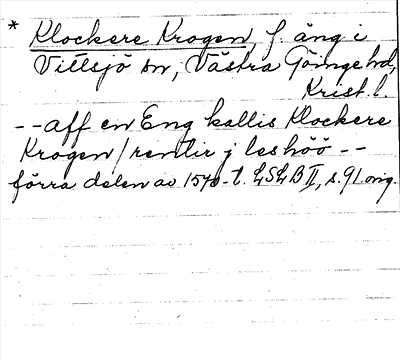 * Klockere Krogen, f. äng i
Vittsjö sn, Västra Göinge hd,
Krist. l.
-- aff en Eng kallis Klockere
Krogen / rentir j leshöö --
förra delen av 1570-t. LSLB II, s. 91 orig.